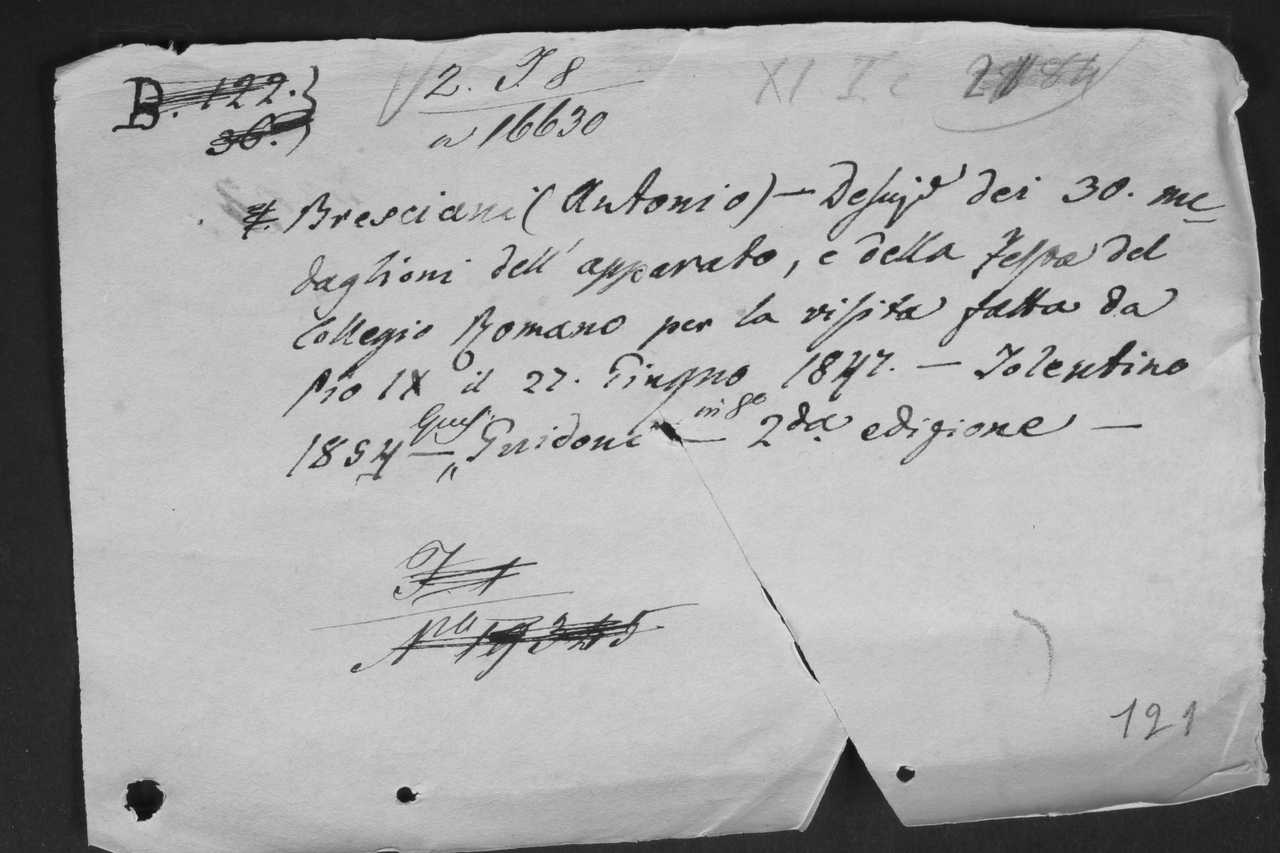 B. 122. 2. I 8 XI I c
36. a 16630
#. Bresciani (Antonio) — Descriz. dei 30. me
daglioni dell' apparato, e della Festa del
Collegio Romano per la visita fatta da
Pio IX il 27. Giugno 1847. — Tolentino
1854 — Guidoni in 8o — 2da edizione —
I 1
No 19345
121